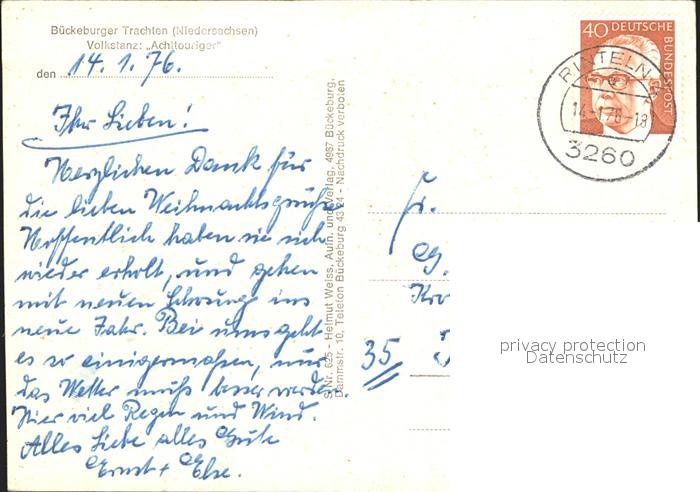 Bückeburger Trachten (Niedersachsen)
Volkstanz: „Achttouriger"
den 14.1.76.
Ihr Lieben!
Herzlichen Dank für
die lieben Weihnachtsgrüße
Hoffentlich haben sie sich
wieder erholt, und gehen
mit neuen Schwung ins
neue Jahr. Bei uns geht
es so einigermaßen, nur
das Wetter muß besser werden.
Hier viel Regen und Wind.
Alles Liebe alles Gute
Ernst + Else.
S Nr. 625 - Helmut Weiss, Aufn. und Verlag, 4967 Bückeburg,
Dammstr. 10, Telefon Bückeburg 43 24 - Nachdruck verboten
40 DEUTSCHE
BUNDESPOST
RINTELN
14.-1.76-18
3260
Fr.
G.
35
privacy protection
Datenschutz